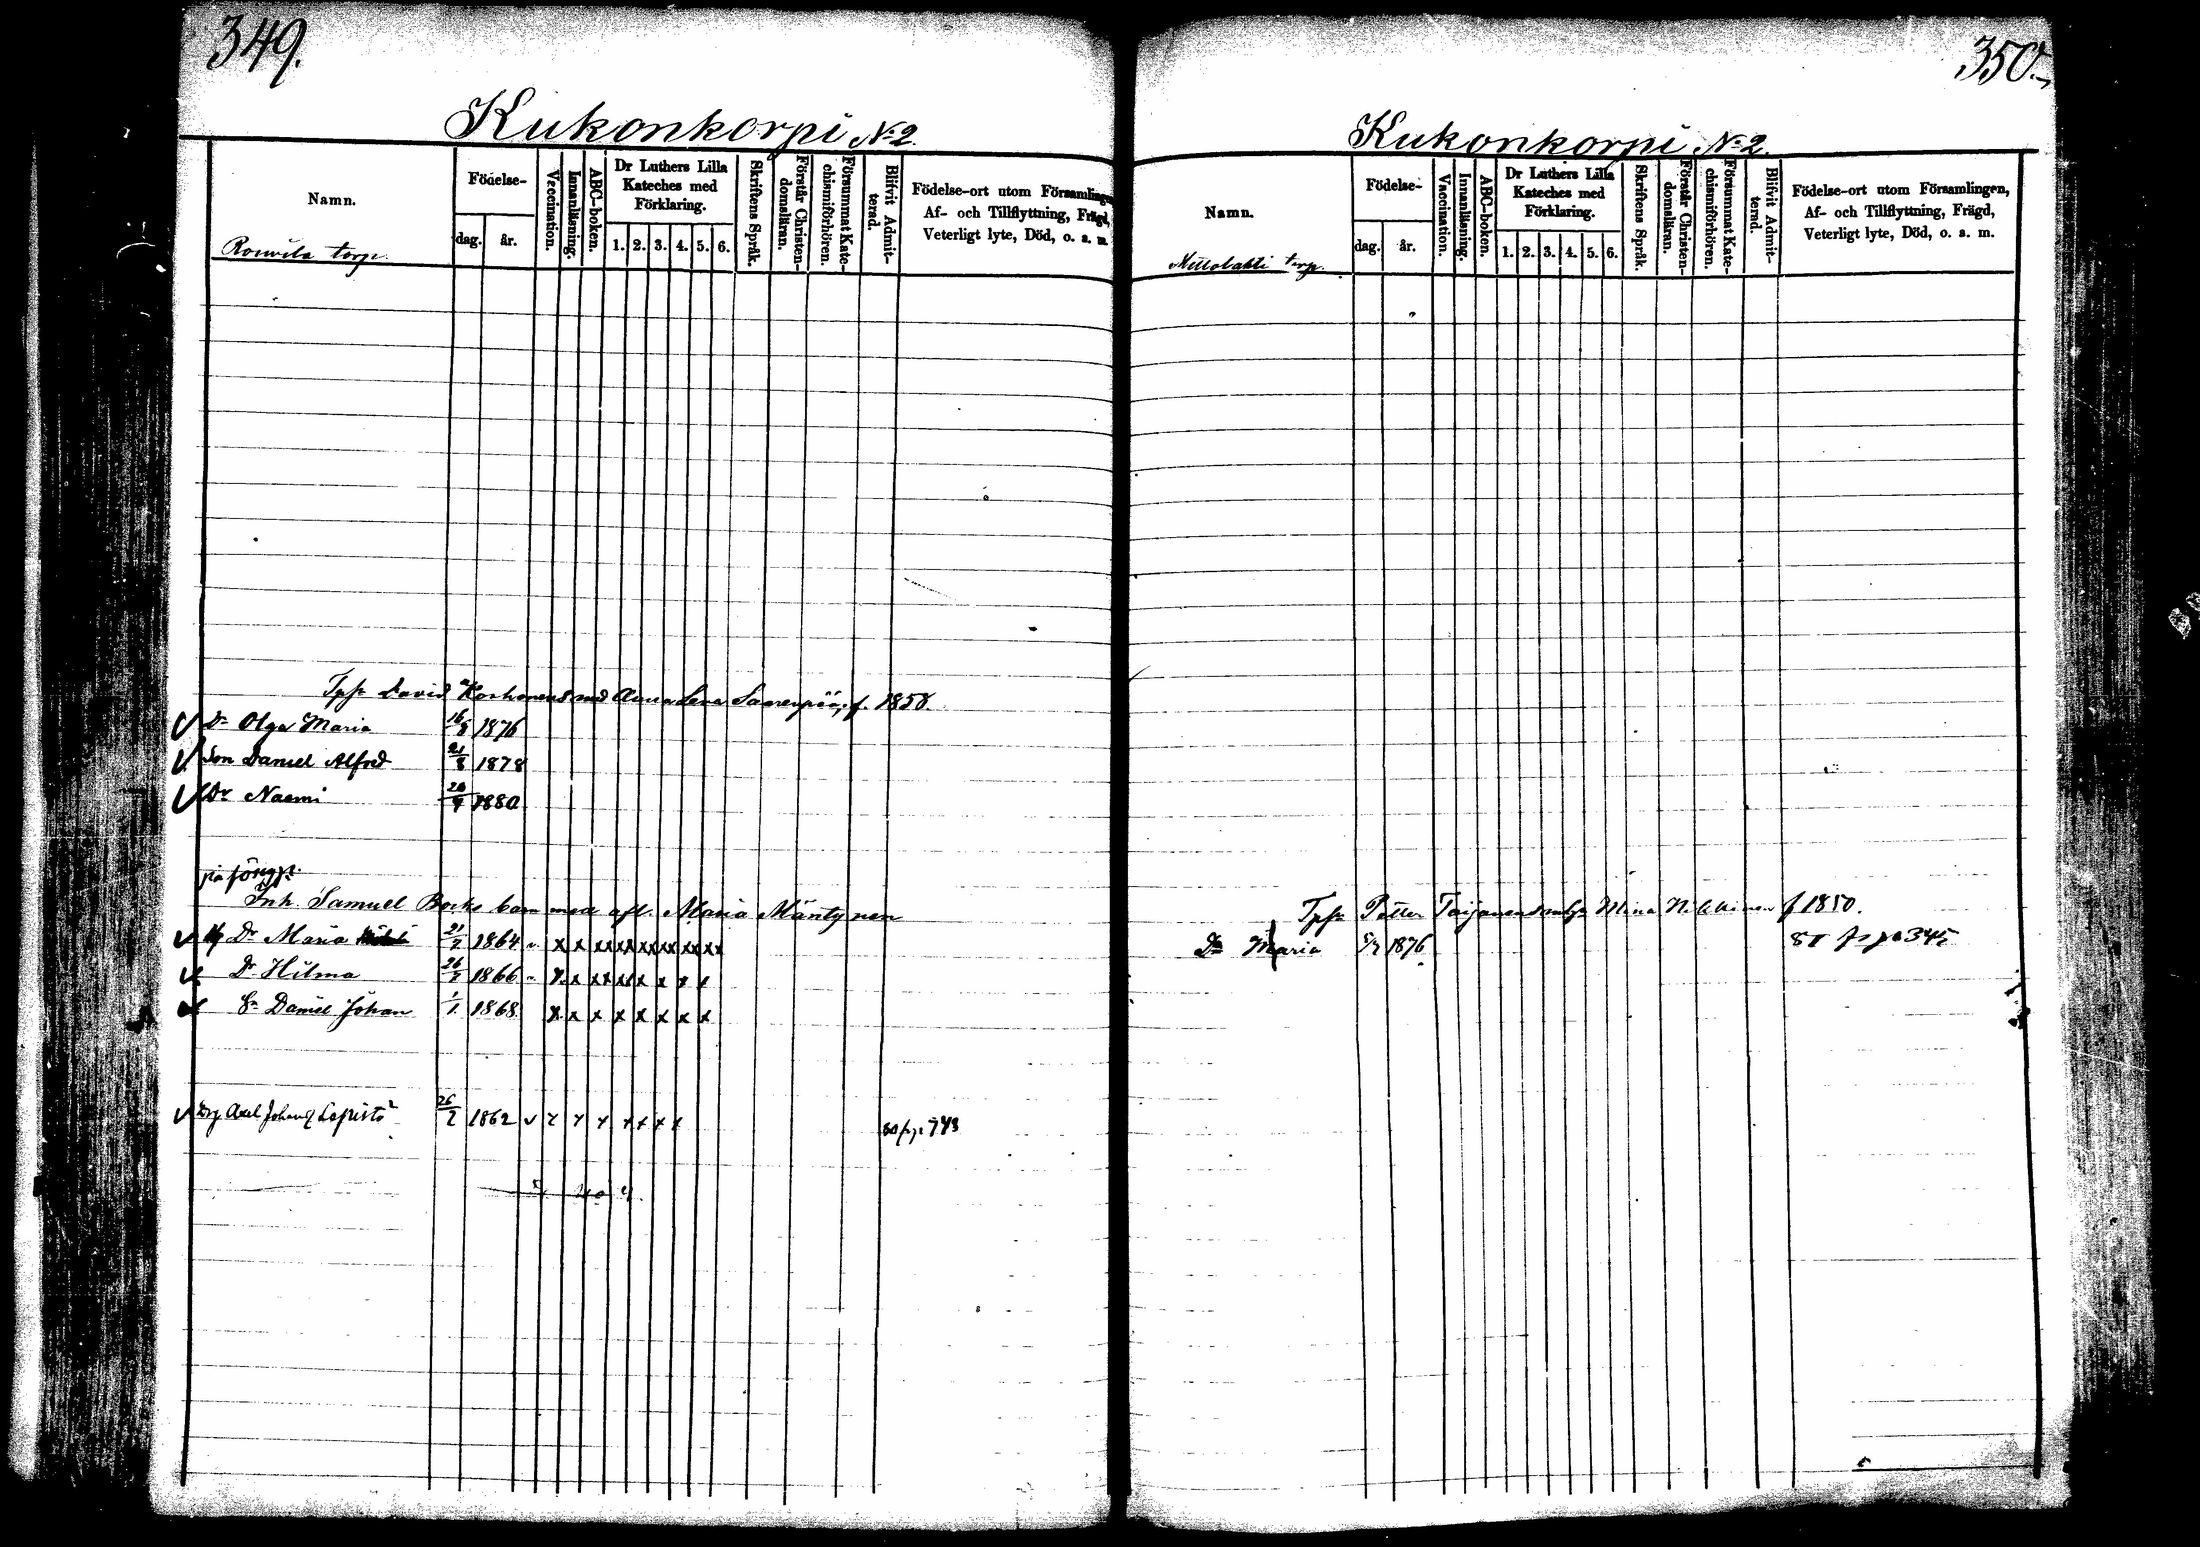 349.
Kukonkorpi No 2.
Namn.
Födelse-
dag. år.
Vaccination.
Innanläsning.
ABC-boken.
Dr Luthers Lilla Kateches med Förklaring.
1. 2. 3. 4. 5. 6.
Skriftens Språk.
Förstår Christendomsläran.
Försummat Katechismiförhören.
Blifvit Admitterad.
Födelse-ort utom Församlingen,
Af- och Tillflyttning, Frägd,
Veterligt lyte, Död, o. a. m.
torp.
Tpr David med Anna Lena f. 1850.
Dr Olga Maria 16/8 1876
Son Daniel Alfred 21/8 1878
Dr Naemi 20/9 1880
på
Inh. Samuel barn med afl. Maria Mäntynen
Dr Maria 21/2 1864 " x x xx xx xx xx xx xx
Dr Hilma 26/2 1866 " x x xx xx x x x x
Sn Daniel Johan 1/1 1868 x x x x x x x x
Axel Johan Lepistö 26/2 1862 v x x x x x x x 743
350.
Kukonkorpi No 2.
Namn.
Födelse-
dag. år.
Vaccination.
Innanläsning.
ABC-boken.
Dr Luthers Lilla Kateches med Förklaring.
1. 2. 3. 4. 5. 6.
Skriftens Språk.
Förstår Christendomsläran.
Försummat Katechismiförhören.
Blifvit Admitterad.
Födelse-ort utom Församlingen,
Af- och Tillflyttning, Frägd,
Veterligt lyte, Död, o. a. m.
torp.
Tpr Petter Mina f 1850.
Dr Maria 5/7 1876 81 345